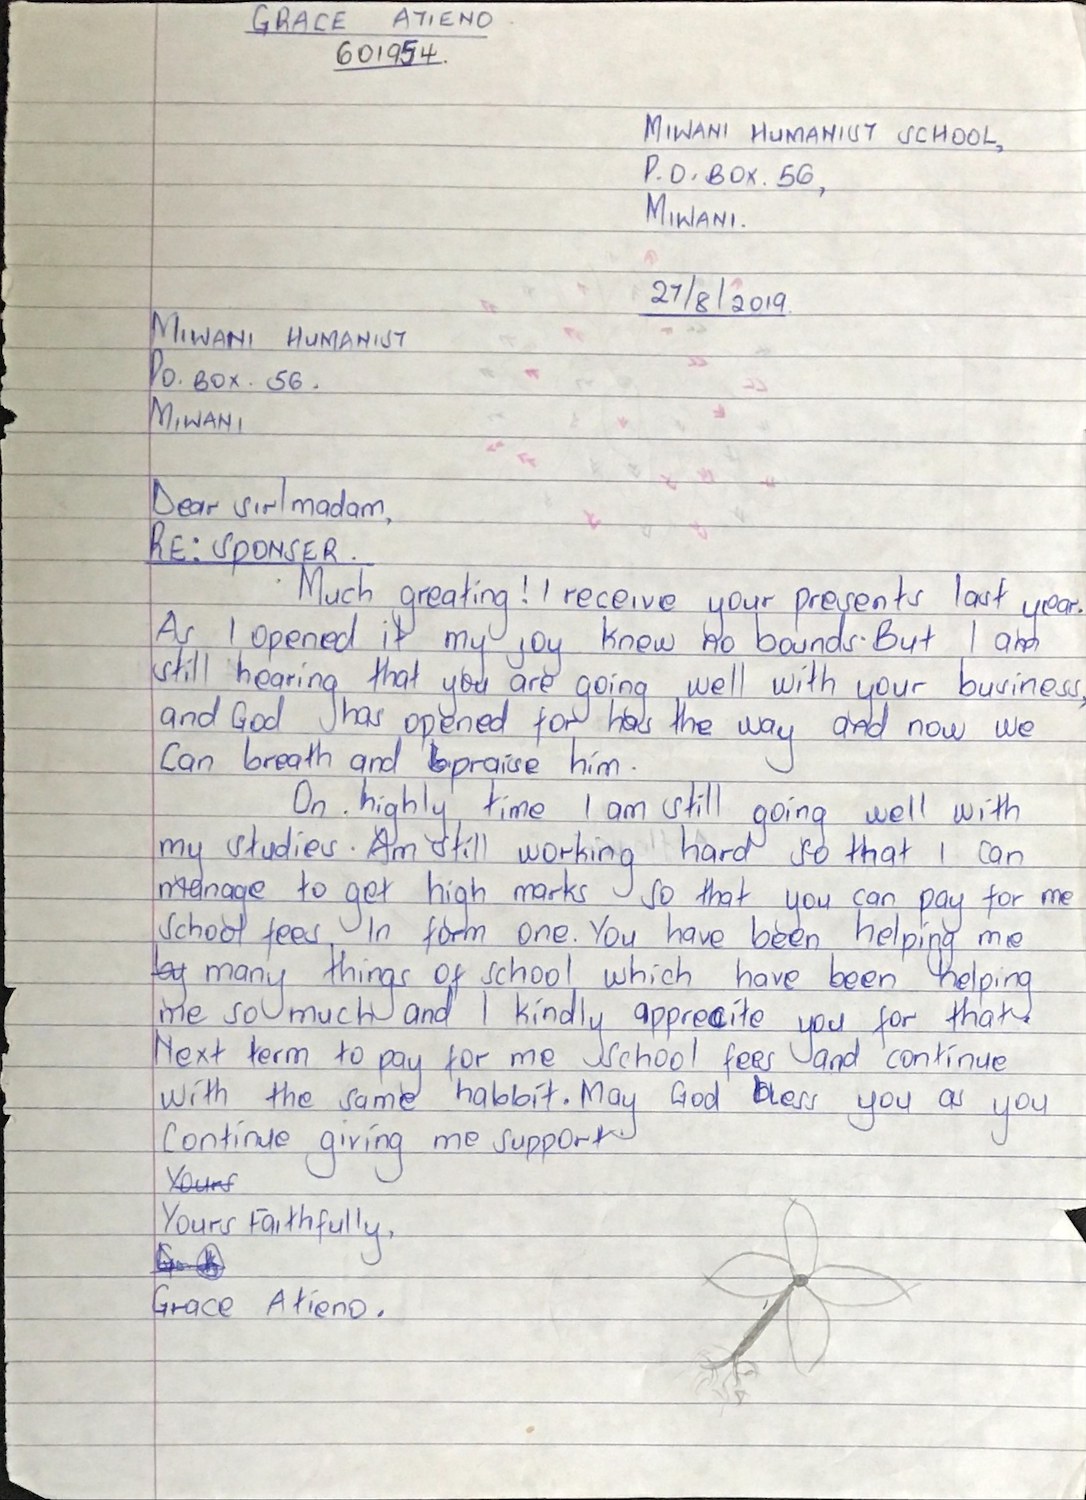 GRACE ATIENO
601954.
MIWANI HUMANIST SCHOOL,
P.O. BOX. 56,
MIWANI.
27/8/2019
MIWANI HUMANIST
PO. BOX. 56.
MIWANI
Dear sir/madam,
RE: SPONSER.
Much greating! I receive your presents last year.
As I opened it my joy knew no bounds. But I am
still hearing that you are going well with your business,
and God has opened for has the way and now we
Can breath and praise him.
On highly time I am still going well with
my studies. Am still working hard so that I can
menage to get high marks so that you can pay for me
school fees In form one. You have been helping me
by many things of school which have been helping
me so much and I kindly apprecite you for that.
Next term to pay for me school fees and continue
with the same habbit. May God bless you as you
Continue giving me support
Yours
Yours Faithfully,
Grace Atieno.